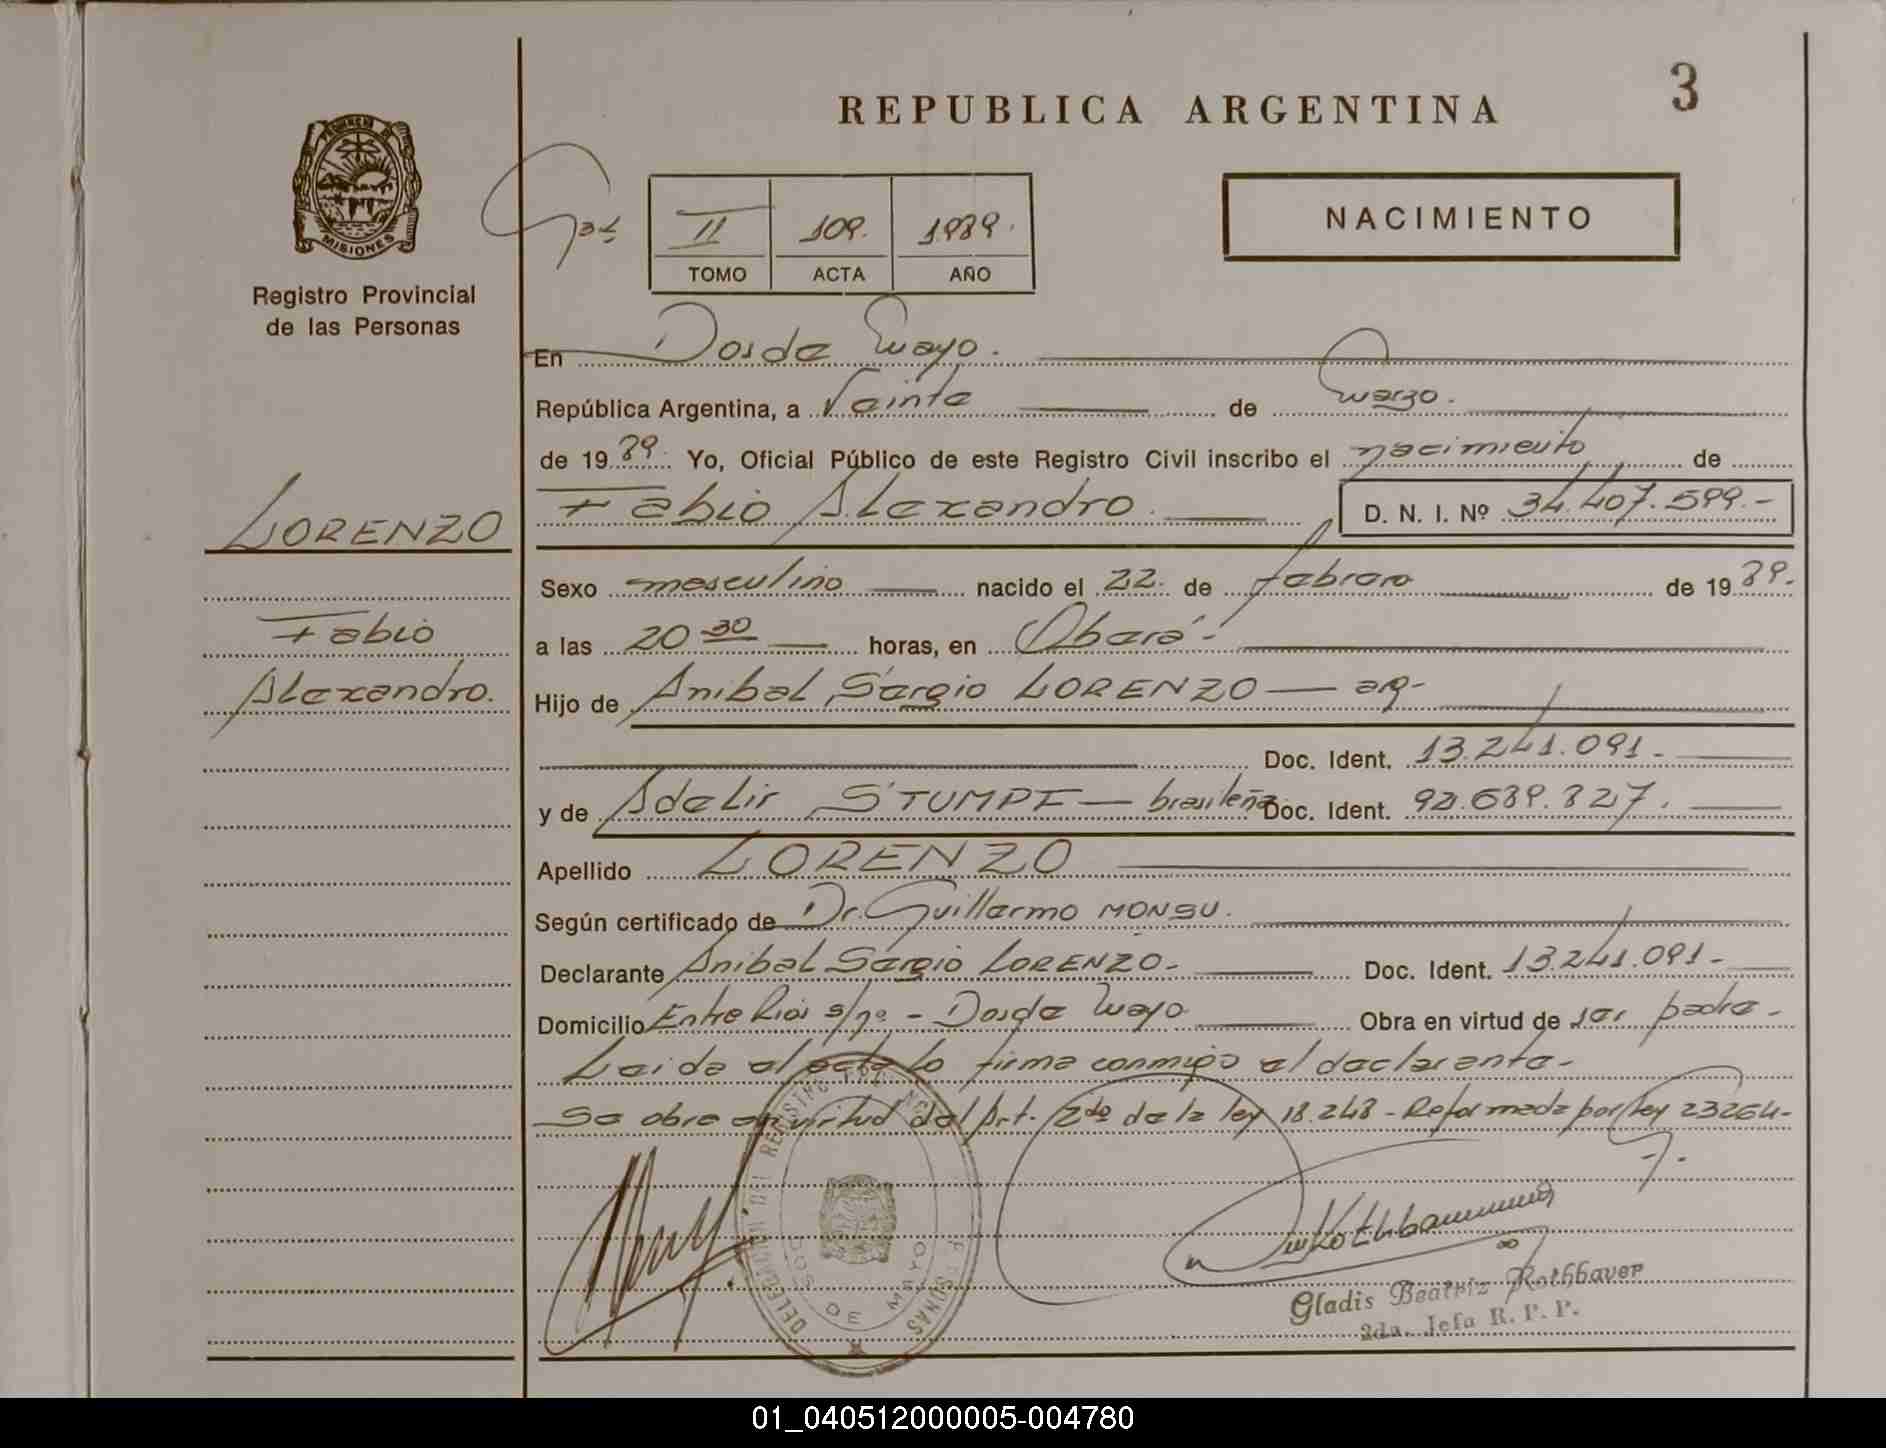 REPUBLICA ARGENTINA
3
PROVINCIA DE
MISIONES
Registro Provincial
de las Personas
II 109. 1989.
TOMO ACTA AÑO
NACIMIENTO
En Dos de Mayo.
República Argentina, a Veinte de Marzo.
de 1989. Yo, Oficial Público de este Registro Civil inscribo el nacimiento de
Fabio Alexandro. D. N. I. Nº 34.407.599.-
LORENZO
Fabio
Alexandro.
Sexo masculino nacido el 22. de febrero de 1989.
a las 20 30 horas, en Oberá.-
Hijo de Anibal Sergio LORENZO — arg-
Doc. Ident. 13.241.091.-
y de Adelir STUMPF — brasileña Doc. Ident. 92.689.827.
Apellido LORENZO
Según certificado de Dr. Guillermo MONSU.
Declarante Anibal Sergio LORENZO.- Doc. Ident. 13.241.091.-
Domicilio Entre Rios s/nº - Dos de Mayo Obra en virtud de ser padre.-
Leida el acta lo firma conmigo el declarante.-
Se obra en virtud del Art. 2do de la ley 18.248 - Reformada por ley 23264-
DELEGACION DEL REGISTRO PERSONAS
DOS DE MAYO
Gladis Beatriz Rothbaver
2da. Jefa R. P. P.
01_040512000005-004780